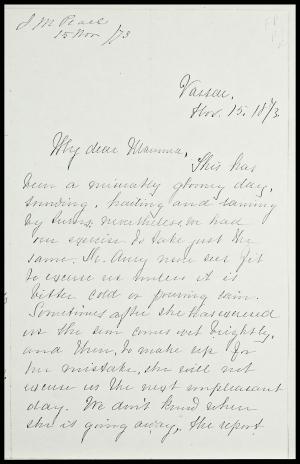 15 Nov /73
Vassar,
Nov. 15. 1873
My dear Mamma,
This has
been a miserably gloomy day,
hailing and raining
by turns. nevertheless we had
our exercise to take just the
same. Dr. Avery never sees fit
to excuse us unless it is
bitter cold or pouring rain.
Sometimes after she has excused
us the sun comes out brightly,
and then, to make up for
her mistake, she will not
excuse us the next unpleasant
day. We don't know when
she is going away, the report